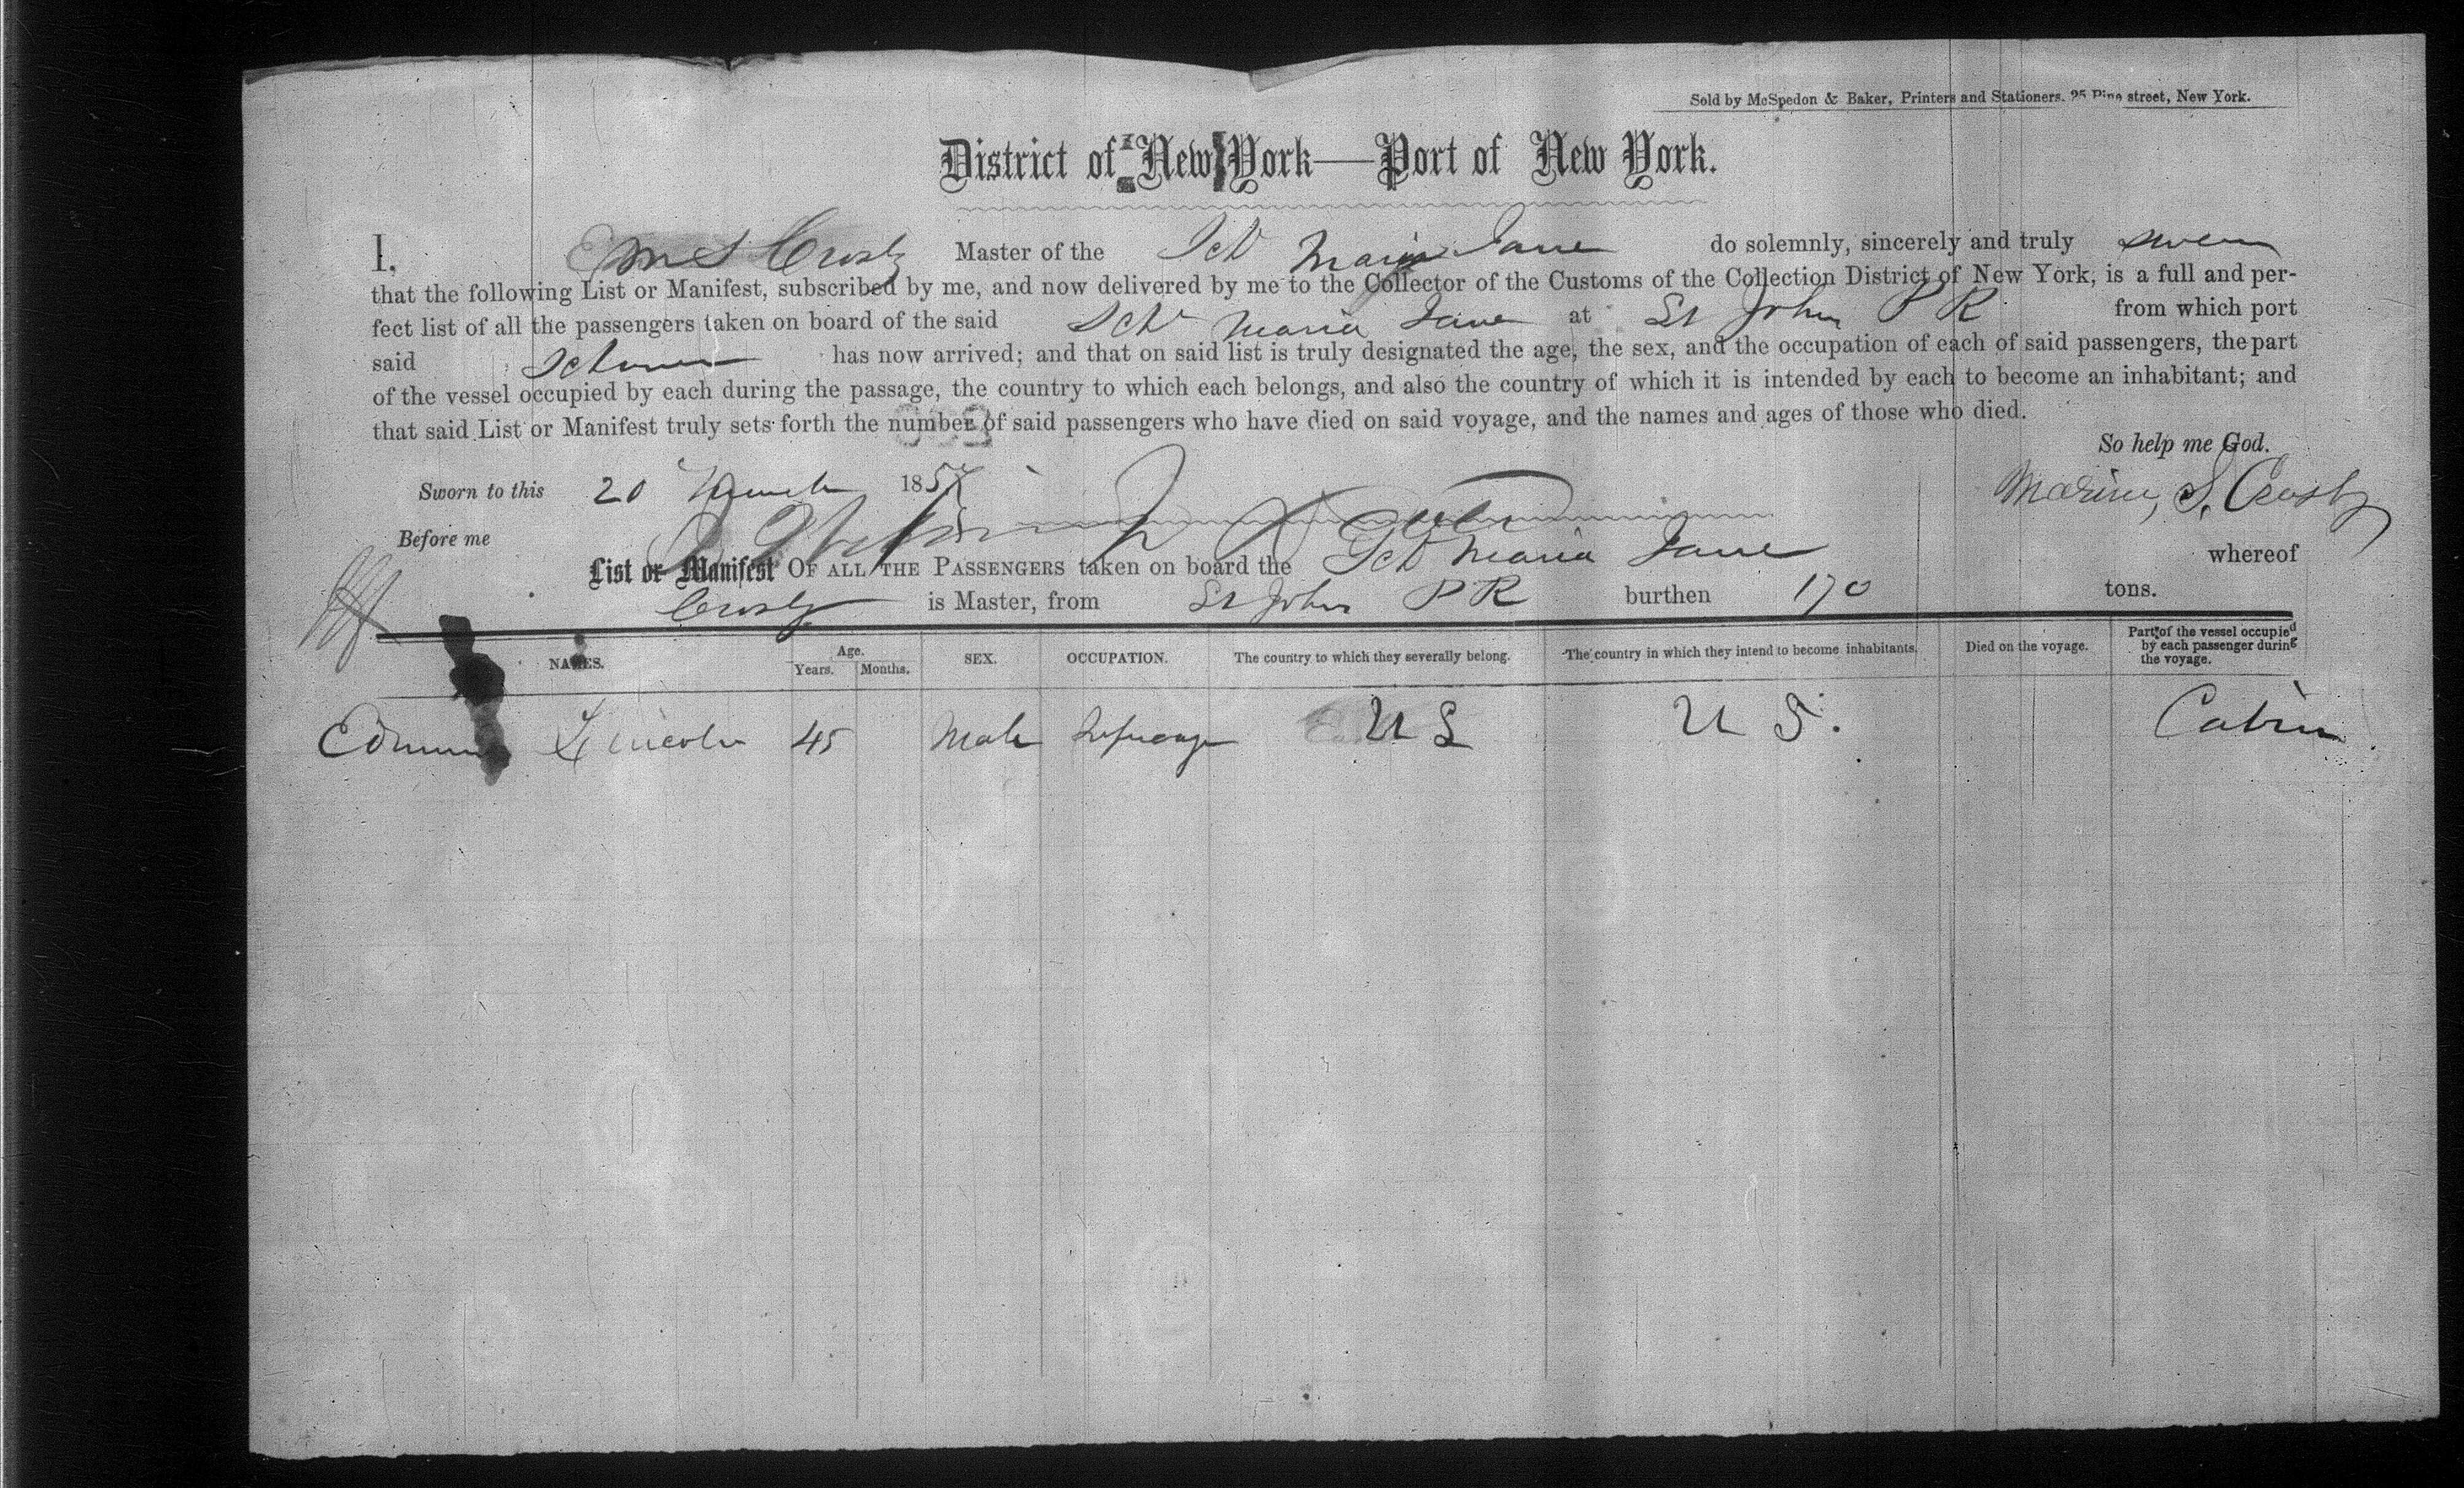 Sold by McSpedon & Baker, Printers and Stationers. 25 Pine street, New York.
District of New York—Port of New York.
I, M S Crosby Master of the Schr Maria Jane do solemnly, sincerely and truly swear
that the following List or Manifest, subscribed by me, and now delivered by me to the Collector of the Customs of the Collection District of New York, is a full and per-
fect list of all the passengers taken on board of the said Schr Maria Jane at St John P R from which port
said Schooner has now arrived; and that on said list is truly designated the age, the sex, and the occupation of each of said passengers, the part
of the vessel occupied by each during the passage, the country to which each belongs, and also the country of which it is intended by each to become an inhabitant; and
that said List or Manifest truly sets forth the number of said passengers who have died on said voyage, and the names and ages of those who died.
So help me God.
Sworn to this 20 March 1857
S. Crosby
Before me
List or Manifest OF ALL THE PASSENGERS taken on board the Schr Maria Jane whereof
Crosby is Master, from St John P R burthen 170 tons.
NAMES. Age. Years. Months. SEX. OCCUPATION. The country to which they severally belong. The country in which they intend to become inhabitants. Died on the voyage. Part of the vessel occupied by each passenger during the voyage.
Lincoln 45 Male U S U S. Cabin